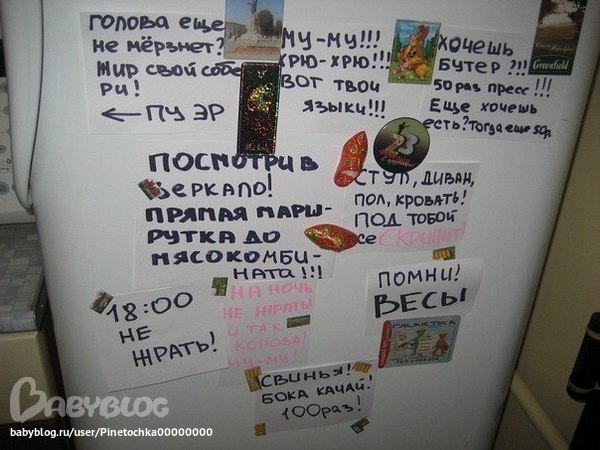 ГОЛОВА ЕЩЕ
НЕ МЁРЗНЕТ?
ЖИР СВОЙ СОБЕ
РИ!
← ПУ ЭР
МУ-МУ!!!
ХРЮ-ХРЮ!!!
ВОТ ТВОИ
ЯЗЫКИ!!!
ХОЧЕШЬ
БУТЕР ?!!
50 РАЗ ПРЕСС !!!
ЕЩЕ ХОЧЕШЬ
ЕСТЬ? ТОГДА ЕЩЕ 50р.
Greenfield
23
ПОСМОТРИ В
ЗЕРКАЛО!
ПРЯМАЯ МАРШ-
РУТКА ДО
МЯСОКОМБИ-
НАТА!!!
СТУЛ, ДИВАН,
ПОЛ, КРОВАТЬ!
ПОД ТОБОЙ
ВСЕ СКРИПИТ!
18:00
НЕ
ЖРАТЬ!
НА НОЧЬ
НЕ ЖРАТЬ!
И ТАК
КОРОВА!
МУ-МУ!
ПОМНИ!
ВЕСЫ
GALAKTIKA
СВИНЬЯ!
БОКА КАЧАЙ,
100 раз!
BABYBLOG
babyblog.ru/user/Pinetochka00000000